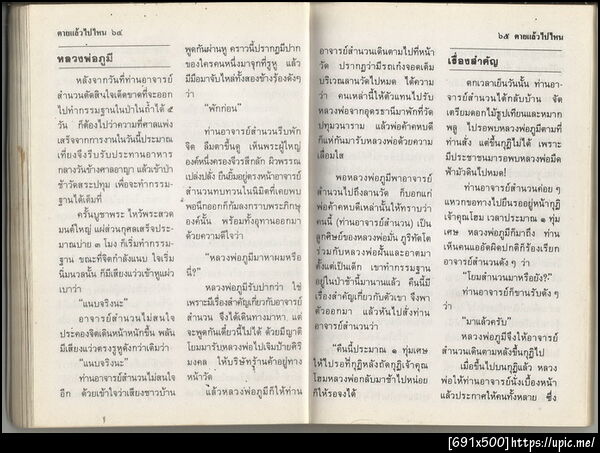 ตายแล้วไปไหน ๖๔
หลวงพ่อภูมี
หลังจากวันที่ท่านอาจารย์
สำนวนตัดสินใจเด็ดขาดที่จะออก
ไปทำกรรมฐานในป่าในถ้ำได้ ๕
วัน ก็ต้องไปว่าความที่ศาลแพ่ง
เสร็จจากการงานในวันนี้ประมาณ
เที่ยงจึงรีบรับประทานอาหาร
กลางวันข้างศาลอาญา แล้วเข้าป่า
ช้าวัดสระปทุม เพื่อจะทำกรรมฐ
านได้เต็มที่
ครั้นบูชาพระ ไหว้พระสวด
มนต์ใหญ่ แผ่ส่วนกุศลเสร็จประ
มาณบ่าย ๓ โมง ก็เริ่มทำกรรม-
ฐาน ขณะที่จิตกำลังแนบ ใจเริ่ม
นิ่มนวลนั้น ก็มีเสียงแว่วเข้าหูแผ่ว
เบาว่า
“แนบจริงนะ”
อาจารย์สำนวนไม่สนใจ
ประคองจิตเดินหน้าหนักขึ้น พลัน
มีเสียงแว่วตรงรูหูดังกว่าเดิมว่า
“แนบจริงนะ”
ท่านอาจารย์สำนวนไม่สนใจ
อีก ด้วยเข้าใจว่าเสียงชาวบ้าน
พูดกันผ่านหู คราวนี้ปรากฏมีปาก
ของใครคนหนึ่งมาจุกที่รูหู แล้ว
มีมือมาจับไหล่ทั้งสองข้างร้องดังๆ
ว่า
“พักก่อน”
ท่านอาจารย์สำนวนรีบพัก
จิต ลืมตาขึ้นดู เห็นพระผู้ใหญ่
องค์หนึ่งครองจีวรสีกลัก ผิวพรรณ
เปล่งปลั่ง ยืนยิ้มอยู่ตรงหน้าอาจารย์
สำนวนทบทวนในนิมิตที่เคยพบ
พอนึกออกก็ก้มลงกราบพระภิกษุ
องค์นั้น พร้อมทั้งอุทานออกมา
ด้วยความดีใจว่า
“หลวงพ่อภูมีมาหาผมหรือ
นี่?”
หลวงพ่อภูมีรับปากว่า ใช่
เพราะมีเรื่องสำคัญเกี่ยวกับอาจารย์
สำนวน จึงได้เดินทางมาหา แต่
จะพูดกันเดี๋ยวนี้ไม่ได้ ด้วยมีญาติ
โยมมารับหลวงพ่อไปเจิมป้ายศิริ
มงคล ให้บริษัทร้านค้าอยู่ทาง
หน้าวัด
แล้วหลวงพ่อภูมีก็ให้ท่าน
๖๕ ตายแล้วไปไหน
อาจารย์สำนวนเดินตามไปที่หน้า
วัด ปรากฏว่ามีรถเก๋งจอดเต็ม
บริเวณลานวัดไปหมด ได้ความ
ว่า คนเหล่านี้ให้ตัวแทนไปรับ
หลวงพ่อจากอุดรธานีมาพักที่วัด
ปทุมวนาราม แล้วพ่อค้าคหบดี
ก็แห่กันมารับหลวงพ่อด้วยความ
เลื่อมใส
พอหลวงพ่อภูมีพาอาจารย์
สำนวนไปถึงลานวัด ก็บอกแก่
พ่อค้าคหบดีเหล่านั้นให้ทราบว่า
คนนี้ (ท่านอาจารย์สำนวน) เป็น
ลูกศิษย์ของหลวงพ่อมั่น ภูริทัตโต
ร่วมกับหลวงพ่อผั้นและอาตมา
ตั้งแต่เป็นเด็ก เขาทำกรรมฐาน
อยู่ในป่าช้านี้มานานแล้ว คืนนี้มี
เรื่องสำคัญเกี่ยวกับตัวเขา จึงพา
ตัวออกมา แล้วหันไปสั่งท่าน
อาจารย์สำนวนว่า
“คืนนี้ประมาณ ๑ ทุ่มเศษ
ให้ไปรอที่กุฏิหลังถัดกุฏิเจ้าคุณ
โฮมหลวงพ่อกลับมาช้าไปหน่อย
ก็ให้รอจงได้
เรื่องสำคัญ
ตกเวลาเย็นวันนั้น ท่านอา-
จารย์สำนวนได้กลับบ้าน จัด
เตรียมดอกไม้ธูปเทียนและหมาก
พลู ไปรอพบหลวงพ่อภูมีตามที่
ท่านสั่ง แต่ขึ้นกุฏิไม่ได้ เพราะ
มีประชาชนมารอพบหลวงพ่อมืด
ฟ้ามัวดินไปหมด!
ท่านอาจารย์สำนวนค่อย ๆ
แหวกขอทางไปยืนรออยู่หน้ากุฏิ
เจ้าคุณโฮม เวลาประมาณ ๑ ทุ่ม
เศษ หลวงพ่อภูมีก็มาถึง ท่าน
เห็นคนแออัดผิดปกติก็ร้องเรียก
อาจารย์สำนวนดัง ๆ ว่า
“โยมสำนวนมาหรือยัง?”
ท่านอาจารย์ก็ขานรับดัง ๆ
ว่า
“มาแล้วครับ”
หลวงพ่อภูมีจึงให้อาจารย์
สำนวนเดินตามหลังขึ้นกุฏิไป
เมื่อขึ้นไปบนกุฏิแล้ว หลวง
พ่อให้ท่านอาจารย์นั่งเบื้องหน้า
แล้วประกาศให้คนทั้งหลาย ซึ่ง
[691x500]https://upic.me/